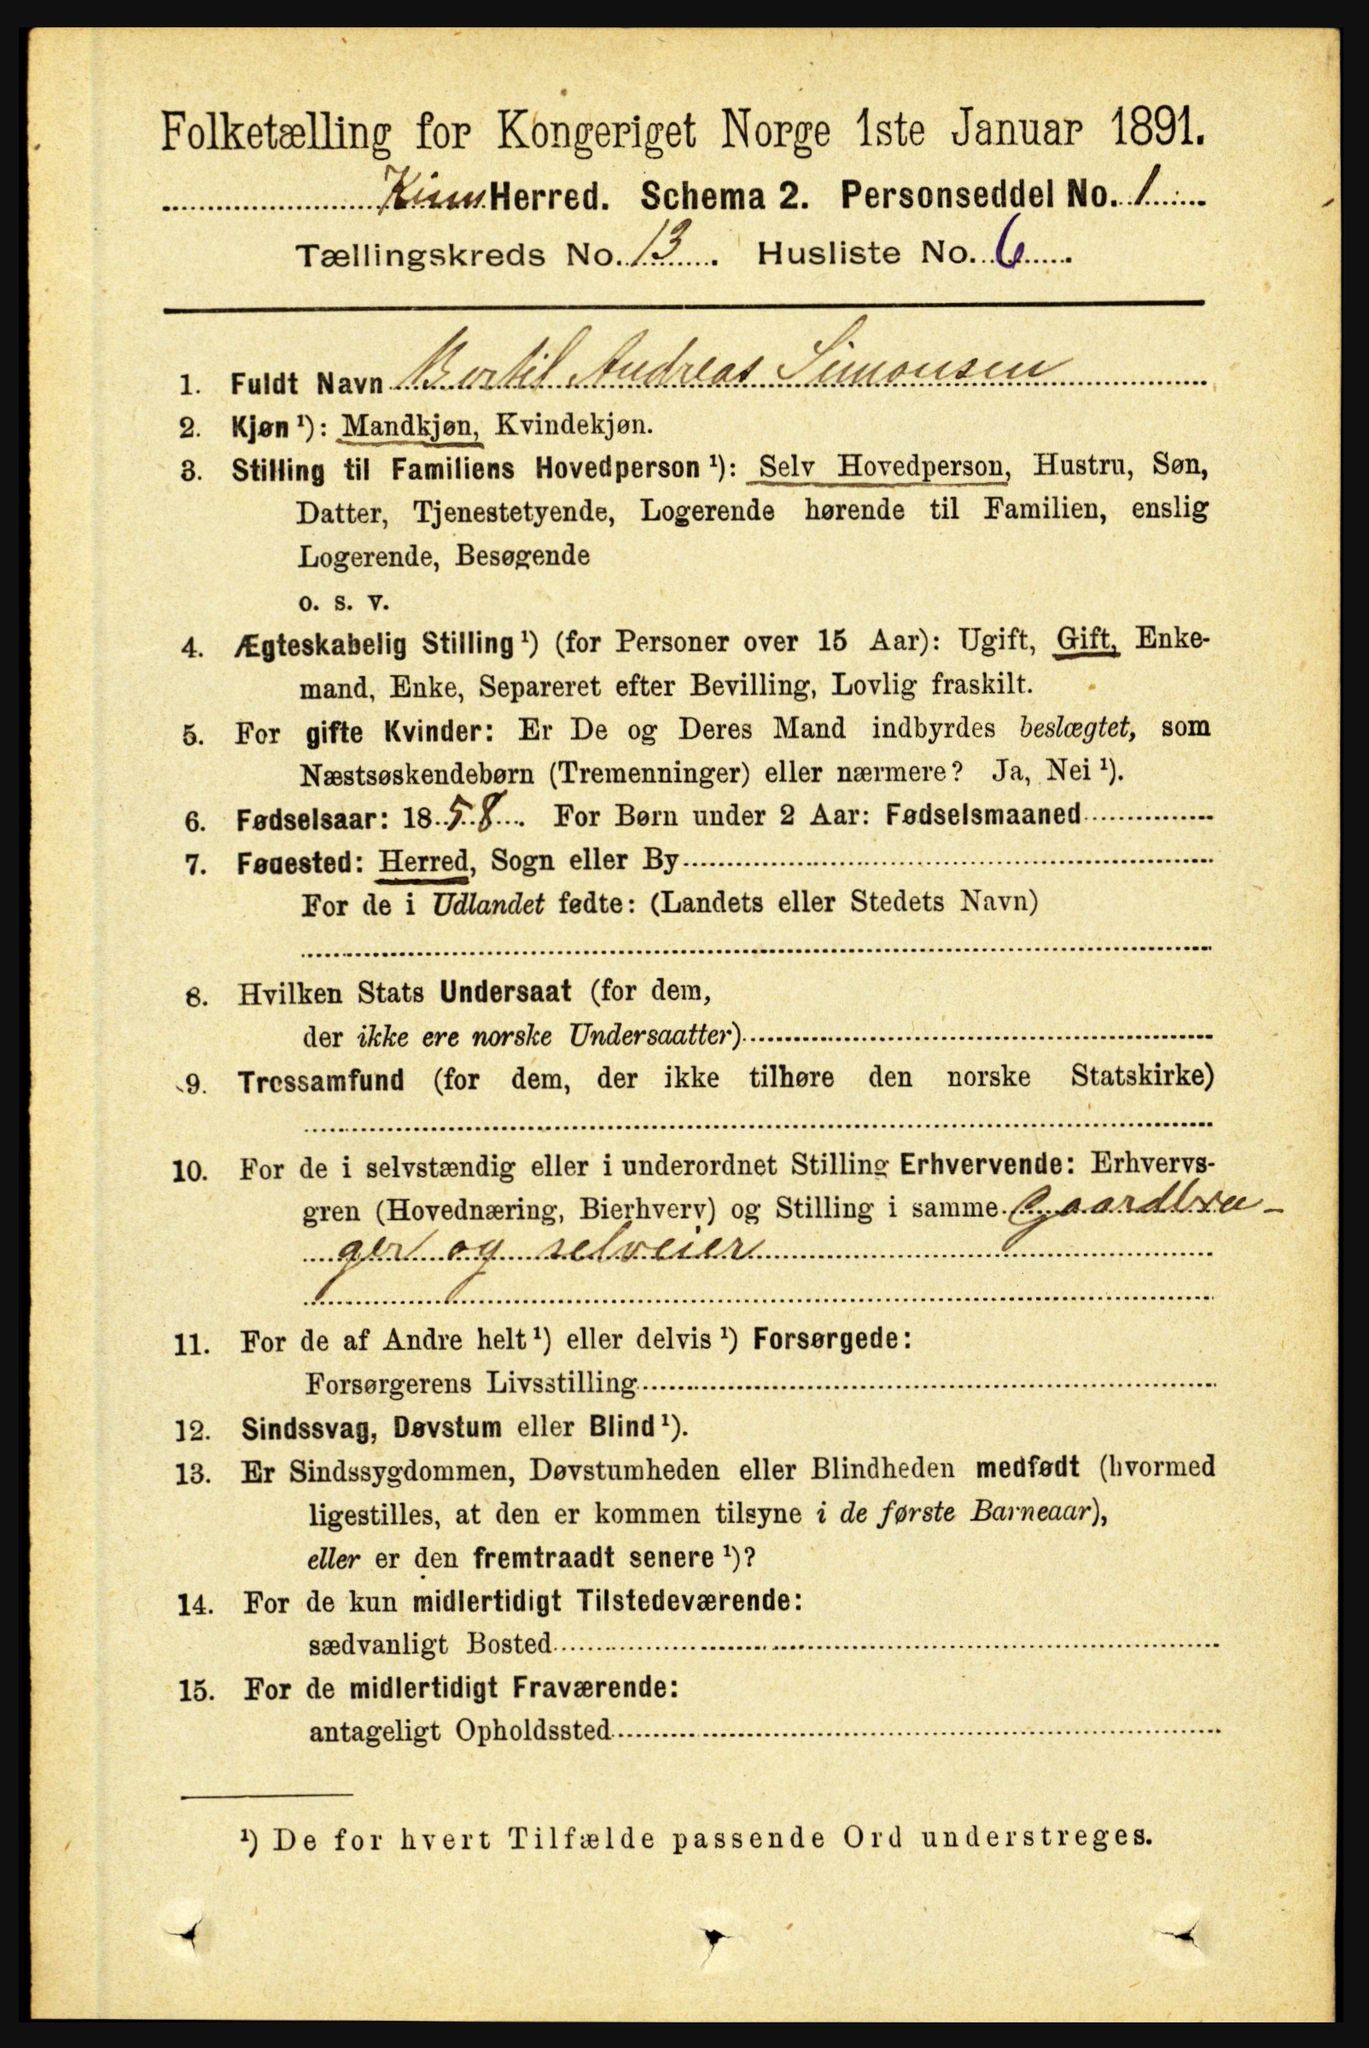 Folketælling for Kongeriget Norge 1ste Januar 1891.
Kinn Herred. Schema 2. Personseddel No. 1
Tællingskreds No. 13. Husliste No. 6
1. Fuldt Navn Bertil Andreas Simonsen
2. Kjøn¹): Mandkjøn, Kvindekjøn.
3. Stilling til Familiens Hovedperson¹): Selv Hovedperson, Hustru, Søn,
Datter, Tjenestetyende, Logerende hørende til Familien, enslig
Logerende, Besøgende
o. s. v.
4. Ægteskabelig Stilling¹) (for Personer over 15 Aar): Ugift, Gift, Enke-
mand, Enke, Separeret efter Bevilling, Lovlig fraskilt.
5. For gifte Kvinder: Er De og Deres Mand indbyrdes beslægtet, som
Næstsøskendebørn (Tremenninger) eller nærmere? Ja, Nei¹).
6. Fødselsaar: 1858. For Børn under 2 Aar: Fødselsmaaned
7. Fødested: Herred, Sogn eller By
For de i Udlandet fødte: (Landets eller Stedets Navn)
8. Hvilken Stats Undersaat (for dem,
der ikke ere norske Undersaatter)
9. Trossamfund (for dem, der ikke tilhøre den norske Statskirke)
10. For de i selvstændig eller i underordnet Stilling Erhvervende: Erhvervs-
gren (Hovednæring, Bierhverv) og Stilling i samme Gaardbru-
ger og selveier
11. For de af Andre helt¹) eller delvis¹) Forsørgede:
Forsørgerens Livsstilling
12. Sindssvag, Døvstum eller Blind¹).
13. Er Sindssygdommen, Døvstumheden eller Blindheden medfødt (hvormed
ligestilles, at den er kommen tilsyne i de første Barneaar),
eller er den fremtraadt senere¹)?
14. For de kun midlertidigt Tilstedeværende:
sædvanligt Bosted
15. For de midlertidigt Fraværende:
antageligt Opholdssted
¹) De for hvert Tilfælde passende Ord understreges.